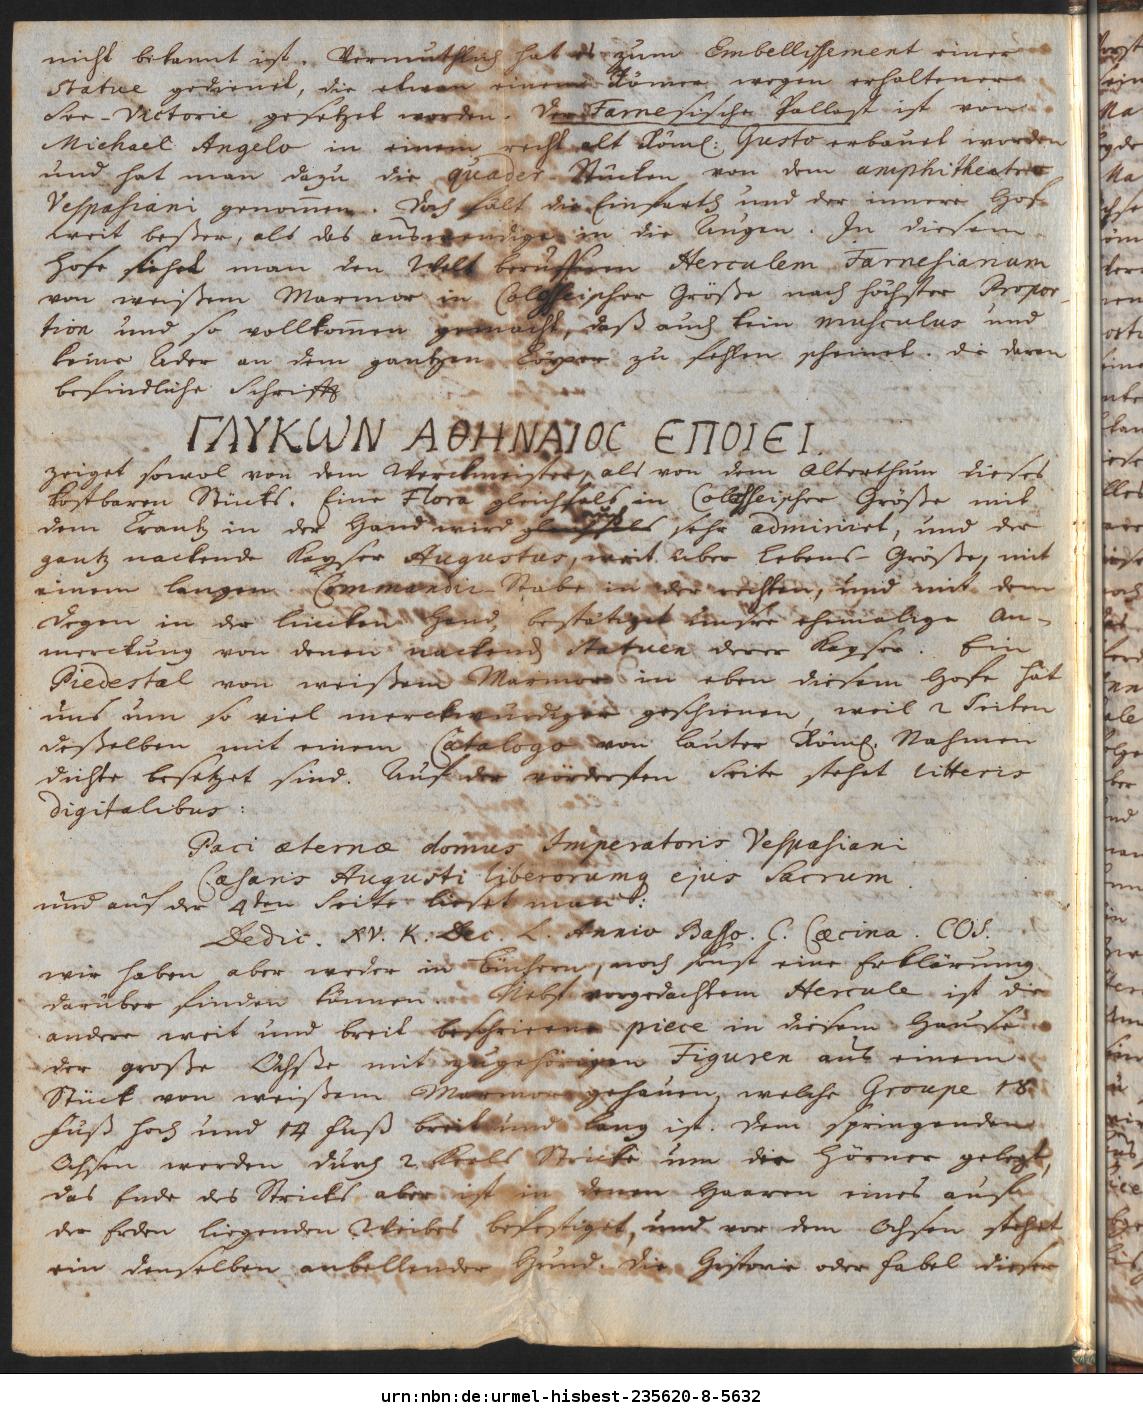 nicht bekannt ist. Vermuthlich hat es zum Embellissement einer
Statue gedienet, die etwan einem Römer wegen erhaltener
See-Victorie gesetzet worden. Der Farnesische Pallast ist von
Michael Angelo in einem recht alt Röml: Gusto erbauet worden
und hat man dazu die quader Stücken von dem amphitheatro
Vespasiani genommen. Doch fält die Einfarth und der innere Hof
weit beßer, als das auswendige in die Augen. In diesem
Hofe siehet man den Welt beruffenen Herculem Farnesianum
von weißem Marmor in Colosseischer Größe nach höchster Propor-
tion und so vollkommen gemacht, daß auch kein musculus und
keine Ader an dem gantzen Cörper zu fehlen scheinet. die daran
befindliche Schrifft
ΓΛΥΚΩΝ ΑΘΗΝΑΙΟC ΕΠΟΙΕΙ.
zeiget sowol von dem Werckmeister, als von dem Alterthum dieses
kostbaren Stücks. Eine Flora gleichfals in Colosseischer Größe mit
dem Crantz in der Hand wird sehr admiriret, und der
gantz nackende Kayser Augustus, weit über Lebens-Größe, mit
einem langen Commandir-Stabe in der rechten, und mit dem
Degen in der lincken Hand bestätiget unsre ehemalige An-
merckung von denen nackend Statuen derer Kayser. Ein
Piedestal von weißem Marmor in eben diesem Hofe hat
uns um so viel merckwürdiger geschienen, weil 2 Seiten
deßelben mit einem Catalogo von lauter Röml. Nahmen
dichte besetzet sind. Auf der vördersten Seite stehet litteris
digitalibus:
Paci æternæ domus Imperatoris Vespasiani
Cæsaris Augusti liberorumq ejus Sacrum.
und auf der 4ten Seite lieset man:
Dedic. XV. K. Dec. L. Annio Basso. C. Cæcina. COS.
wir haben aber weder in Büchern, noch sonst eine Erklärung
darüber finden können. Nebst vorgedachtem Hercule ist die
andere weit und breit beschriene piece in diesem Hause
der große Ochße mit zugehörigen Figuren aus einem
Stück von weißem Marmor gehauen, welche Groupe 18
Fuß hoch und 14 Fuß breit und lang ist. Dem springenden
Ochsen werden durch 2 Kerls Stricke um die Hörner gelegt,
das Ende des Stricks aber ist in denen Haaren eines auf
der Erden liegenden Weibes befestiget, und vor dem Ochsen stehet
ein denselben anbellender Hund. Die Historie oder Fabel dieser
urn:nbn:de:urmel-hisbest-235620-8-5632